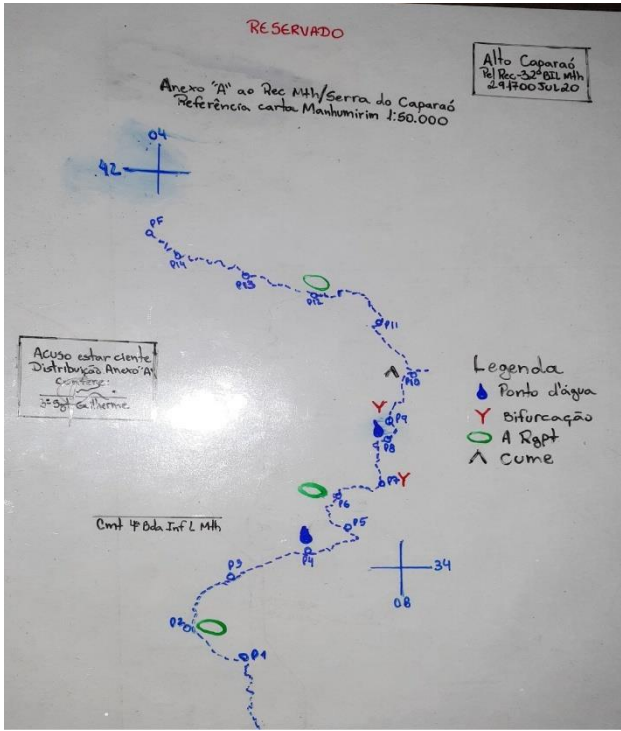 RESERVADO
Alto Caparaó
Pel Rec-32º BIL Mth
291700JUL20
Anexo "A" ao Rec Mth/Serra do Caparaó
Referência carta Manhumirim 1:50.000
04
42
PF
P14
P13
P12
P11
P10
Acuso estar ciente
Distribuição Anexo "A"
Confere:
3º Sgt Guilherme
Legenda
Ponto d'água
Bifurcação
A Rgpt
Cume
P9
P8
P7
P6
P5
Cmt 4ª Bda Inf L Mth
P4
P3
34
08
P2
P1